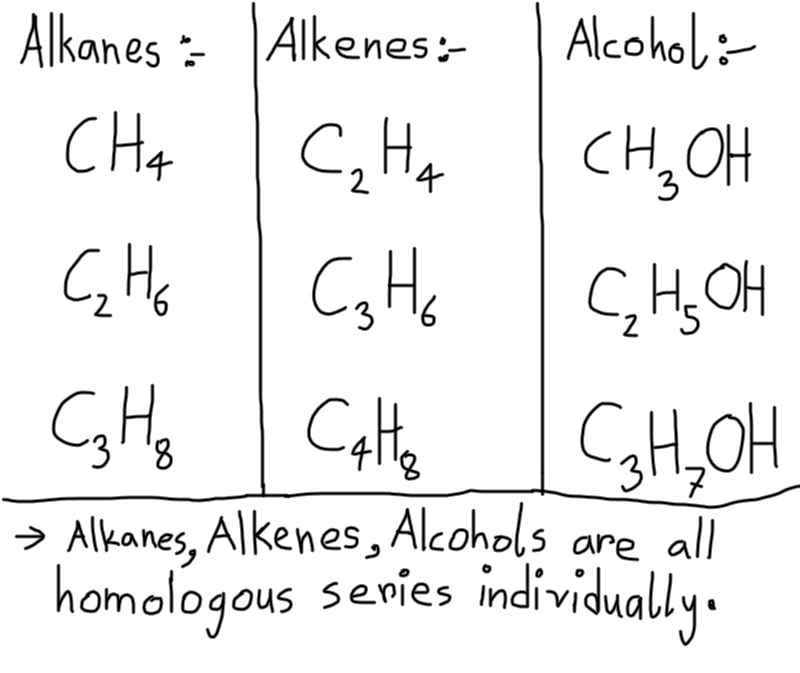 Alkanes :- Alkenes :- Alcohol :-
CH₄ C₂H₄ CH₃OH
C₂H₆ C₃H₆ C₂H₅OH
C₃H₈ C₄H₈ C₃H₇OH
→ Alkanes, Alkenes, Alcohols are all
homologous series individually.